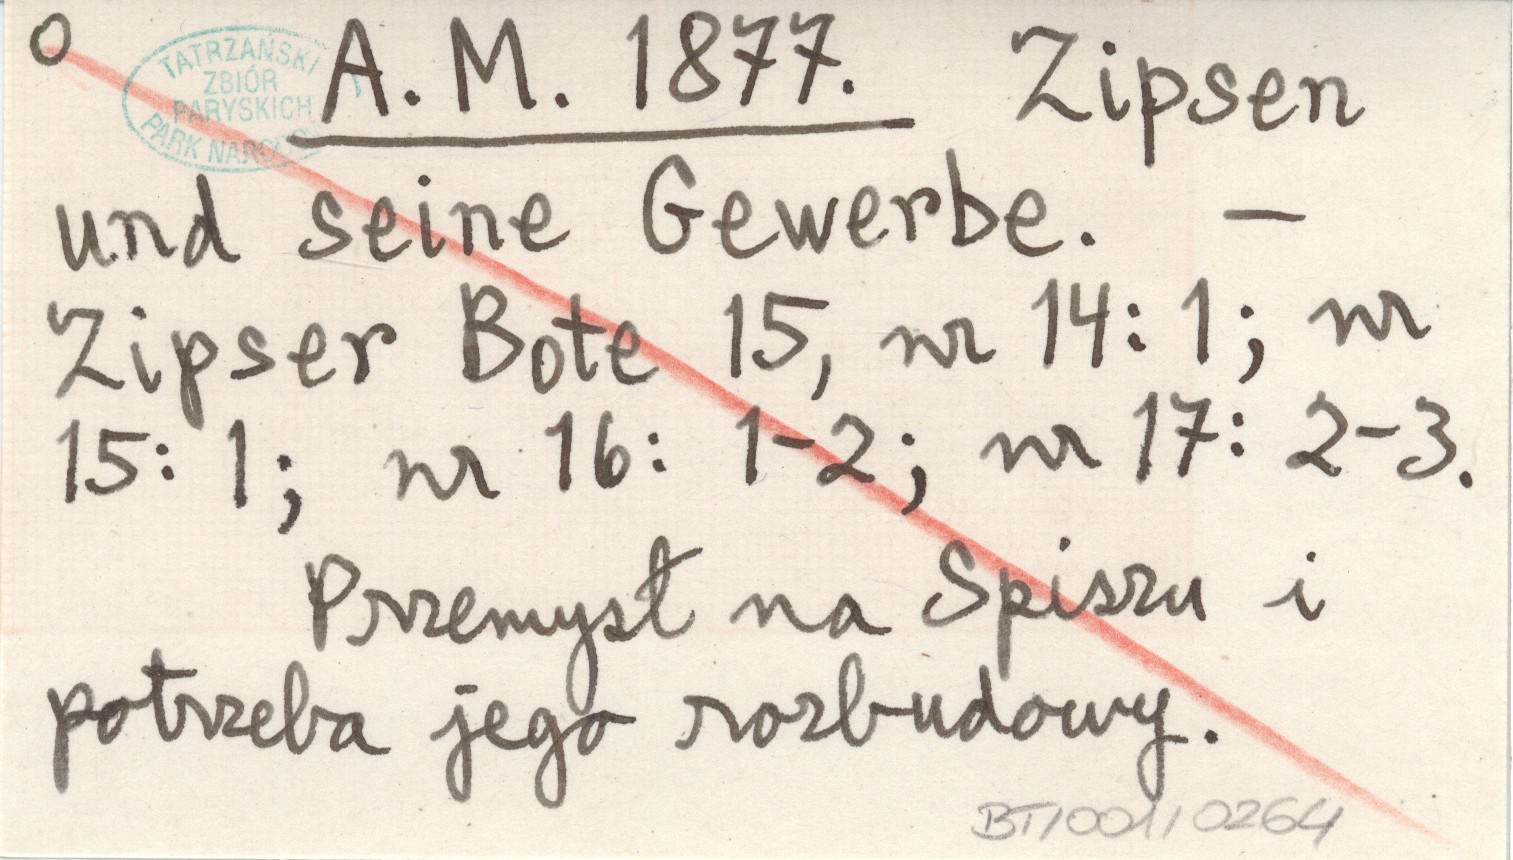 O
TATRZAŃSKI
ZBIÓR
PARYSKICH
PARK
A. M. 1877. Zipsen
und seine Gewerbe. —
Zipser Bote 15, nr 14: 1; nr
15: 1; nr 16: 1-2; nr 17: 2-3.
Przemysł na Spiszu i
potrzeba jego rozbudowy.
BT/001/0264